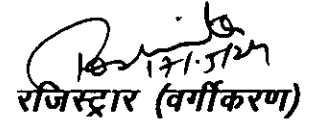 17/5/24
रजिस्ट्रार (वर्गीकरण)